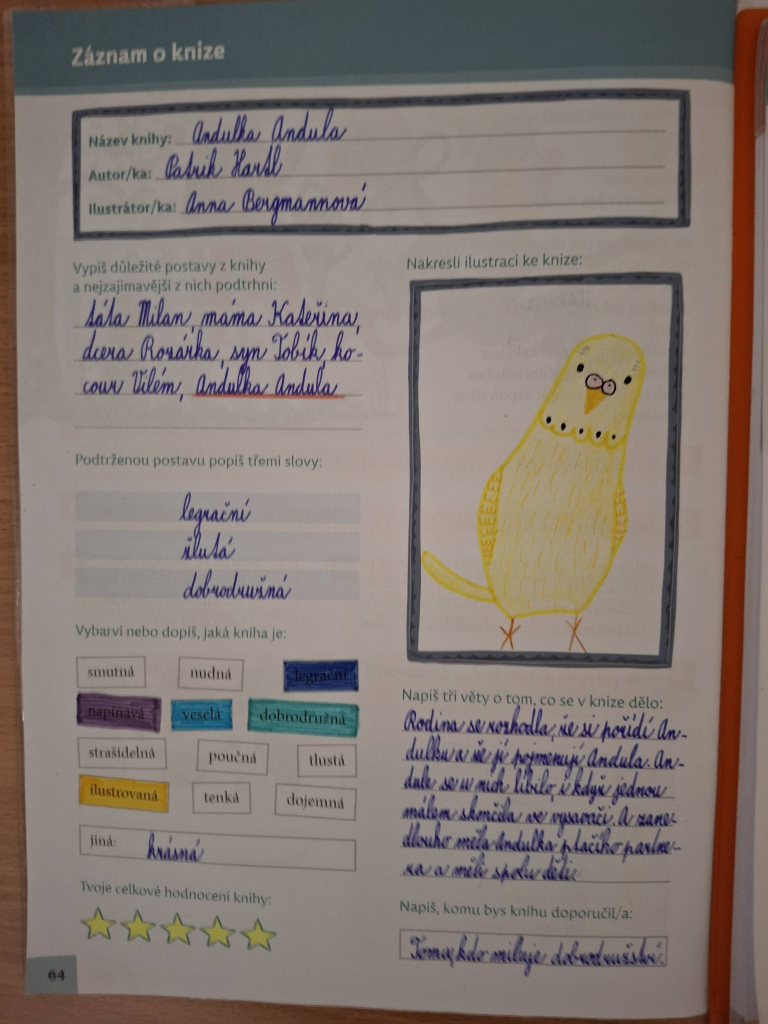 Záznam o knize
Název knihy: Andulka Andula
Autor/ka: Patrik Hartl
Ilustrátor/ka: Anna Bergmannová
Vypiš důležité postavy z knihy
a nejzajímavější z nich podtrhni:
táta Milan, máma Kateřina,
dcera Rozárka, syn Tobík, ko-
cour Vilém, Andulka Andula
Podtrženou postavu popiš třemi slovy:
legrační
žlutá
dobrodružná
Vybarvi nebo dopiš, jaká kniha je:
smutná nudná legrační
napínavá veselá dobrodružná
strašidelná poučná tlustá
ilustrovaná tenká dojemná
jiná: krásná
Tvoje celkové hodnocení knihy:
64
Nakresli ilustraci ke knize:
Napiš tři věty o tom, co se v knize dělo:
Rodina se rozhodla, že si pořídí An-
dulku a že jí pojmenují Andula. An-
dule se u nich líbilo, i když jednou
málem skončila ve vysavači. A zane-
dlouho měla Andulka ptačího partne-
ra a měli spolu děti.
Napiš, komu bys knihu doporučil/a:
Tomu, kdo miluje dobrodružství.